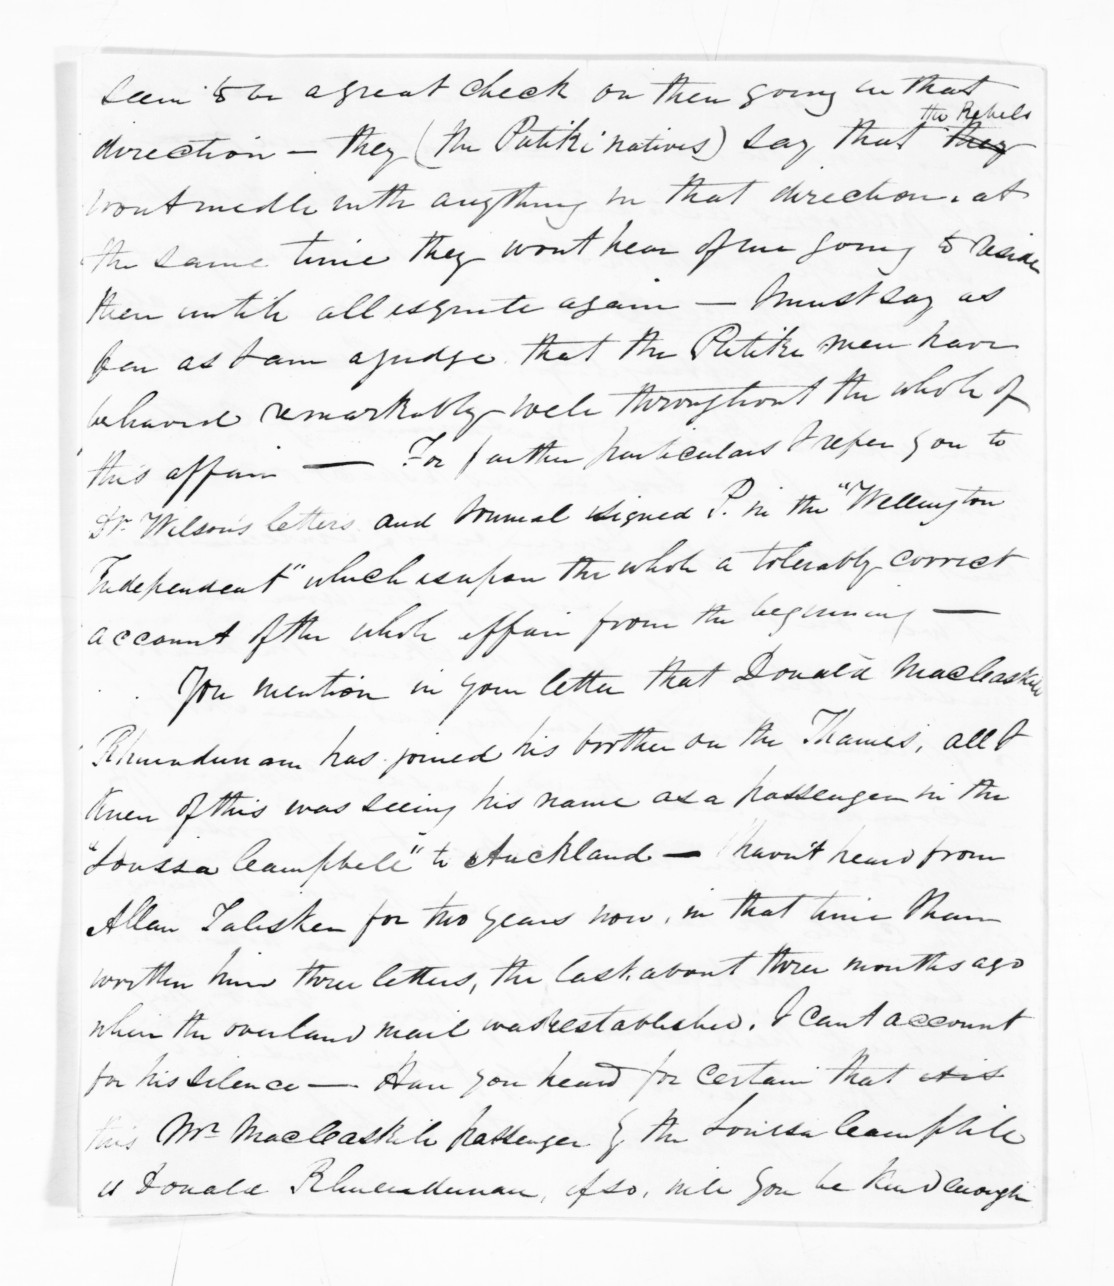 seem to be a great check on them going in that
direction — they (the Putiki natives) say that they the Rebels
wont meddle with anything in that direction. at
the same time they wont hear of me going to reside
there until all is quite again — I must say as
far as I am a judge that the Putiki men have
behaved remarkably well throughout the whole of
this affair — For further particulars I refer you to
Dr Wilson's letters and Journal signed P. in the "Wellington
Independent" which is upon the whole a tolerably correct
account of the whole affair from the beginning —
You mention in your letter that Donald MacCaskill
Rhuendunan has joined his brother on the Thames, all I
knew of this was seeing his name as a passenger in the
"Louisa Campbell" to Auckland — I havn't heard from
Allan Talisker for two years now, in that time I have
written him three letters, the last about three months ago
when the overland mail was reestablished. I cant account
for his silence — Have you heard for certain that it is
this Mr MacCaskill passenger by the Louisa Campbell
is Donald Rhuendunan, if so, will you be kind enough